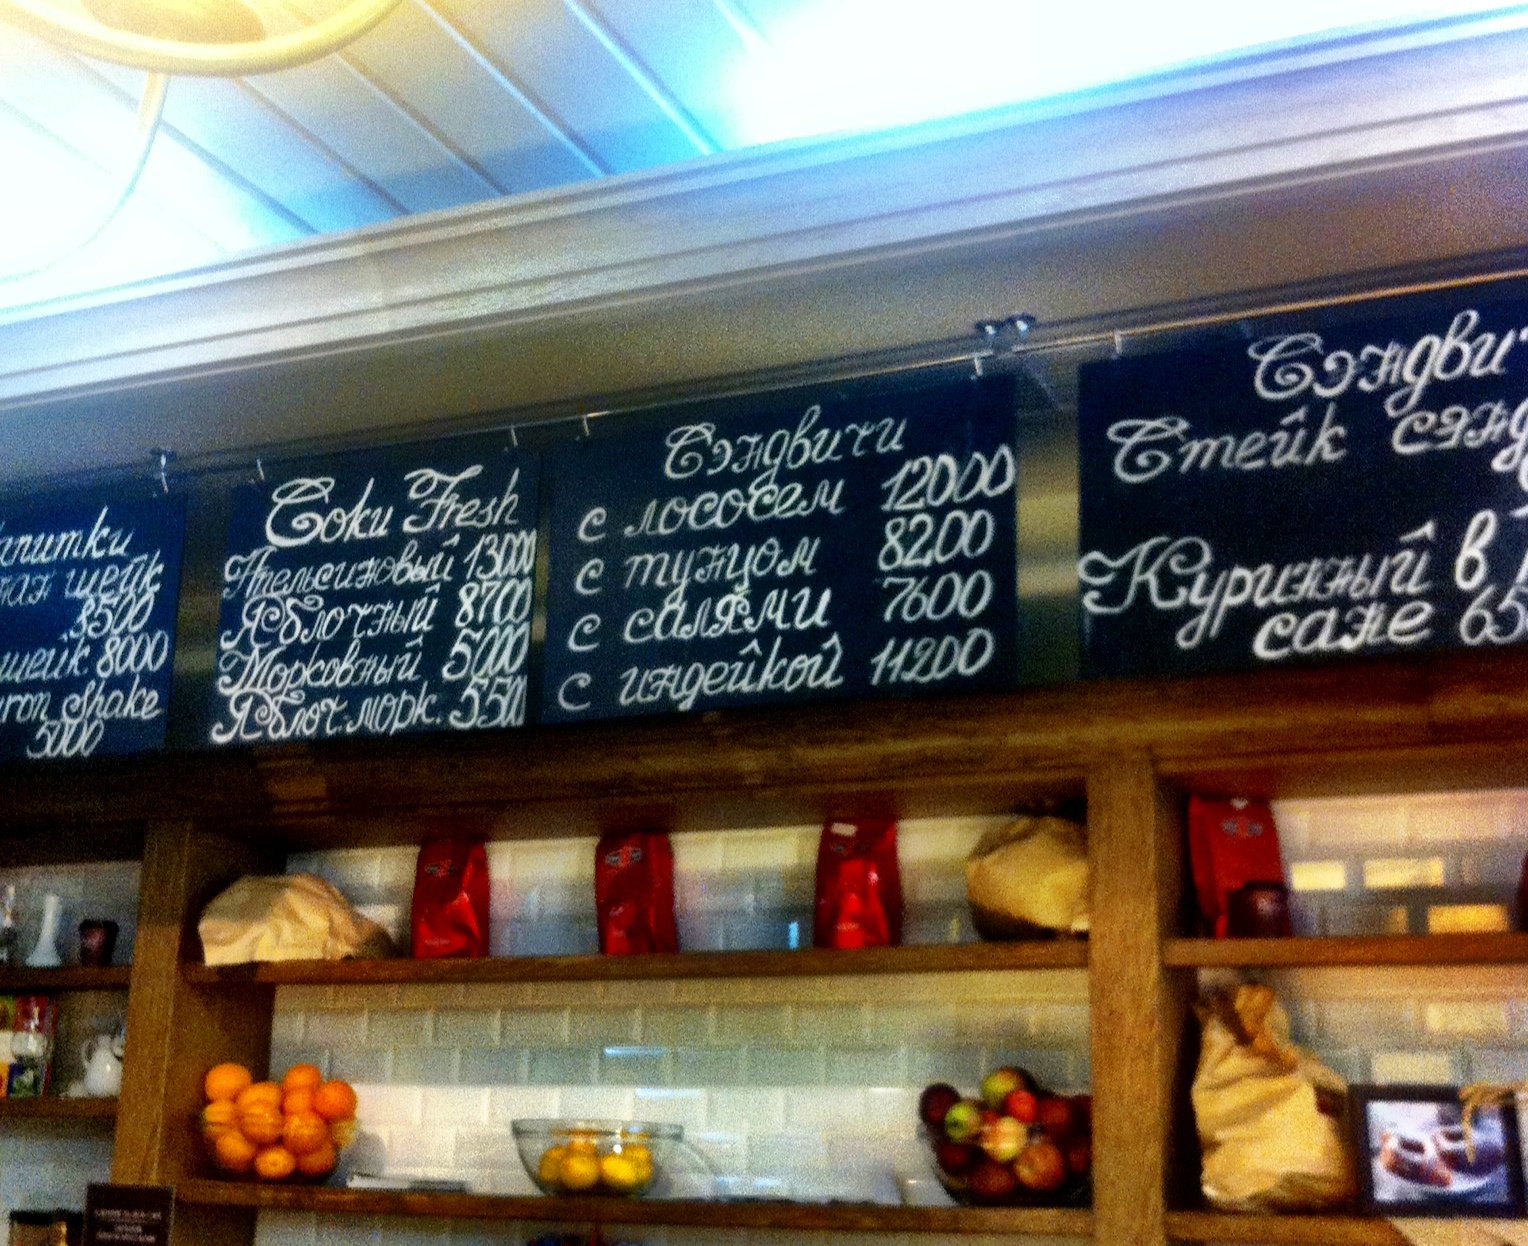 шейк
3500
шейк 8000
Shake
5000
Соки Fresh
Апельсиновый 13000
Яблочный 8700
Морковный 5000
Яблоч.морк. 5500
Сэндвичи
с лососем 12000
с тунцом 8200
с салями 7600
с индейкой 11200
Стейк
Куриный в